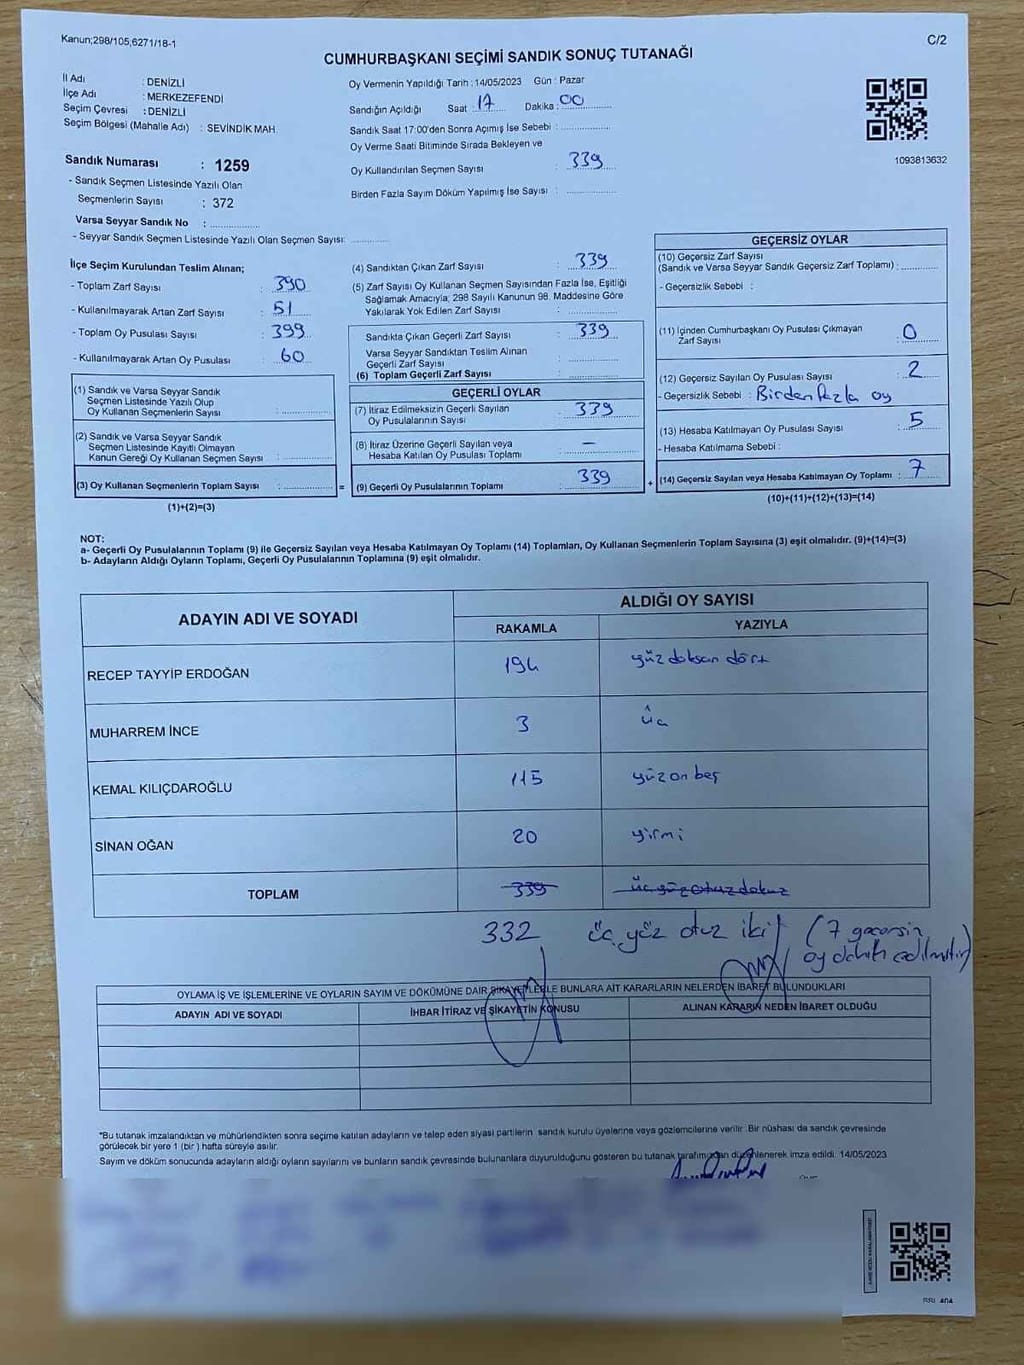 Kanun;298/105,6271/18-1
C/2
CUMHURBAŞKANI SEÇİMİ SANDIK SONUÇ TUTANAĞI
İl Adı : DENİZLİ
İlçe Adı : MERKEZEFENDİ
Seçim Çevresi : DENİZLİ
Seçim Bölgesi (Mahalle Adı) : SEVİNDİK MAH.
Sandık Numarası : 1259
- Sandık Seçmen Listesinde Yazılı Olan
Seçmenlerin Sayısı : 372
Varsa Seyyar Sandık No :
- Seyyar Sandık Seçmen Listesinde Yazılı Olan Seçmen Sayısı:
Oy Vermenin Yapıldığı Tarih : 14/05/2023 Gün : Pazar
Sandığın Açıldığı Saat 17 Dakika : 00
Sandık Saat 17:00'den Sonra Açımış İse Sebebi :
Oy Verme Saati Bitiminde Sırada Bekleyen ve
Oy Kullandırılan Seçmen Sayısı : 339
Birden Fazla Sayım Döküm Yapılmış İse Sayısı :
1093813632
İlçe Seçim Kurulundan Teslim Alınan;
- Toplam Zarf Sayısı : 390
- Kullanılmayarak Artan Zarf Sayısı : 51
- Toplam Oy Pusulası Sayısı : 399
- Kullanılmayarak Artan Oy Pusulası : 60
(1) Sandık ve Varsa Seyyar Sandık
Seçmen Listesinde Yazılı Olup
Oy Kullanan Seçmenlerin Sayısı :
(2) Sandık ve Varsa Seyyar Sandık
Seçmen Listesinde Kayıtlı Olmayan
Kanun Gereği Oy Kullanan Seçmen Sayısı :
(3) Oy Kullanan Seçmenlerin Toplam Sayısı : =
(1)+(2)=(3)
(4) Sandıktan Çıkan Zarf Sayısı : 339
(5) Zarf Sayısı Oy Kullanan Seçmen Sayısından Fazla İse, Eşitliği
Sağlamak Amacıyla, 298 Sayılı Kanunun 98. Maddesine Göre
Yakılarak Yok Edilen Zarf Sayısı :
Sandıkta Çıkan Geçerli Zarf Sayısı : 339
Varsa Seyyar Sandıktan Teslim Alınan
Geçerli Zarf Sayısı :
(6) Toplam Geçerli Zarf Sayısı :
GEÇERLİ OYLAR
(7) İtiraz Edilmeksizin Geçerli Sayılan
Oy Pusulalarının Sayısı : 339
(8) İtiraz Üzerine Geçerli Sayılan veya
Hesaba Katılan Oy Pusulası Toplamı : —
(9) Geçerli Oy Pusulalarının Toplamı : 339 +
GEÇERSİZ OYLAR
(10) Geçersiz Zarf Sayısı
(Sandık ve Varsa Seyyar Sandık Geçersiz Zarf Toplamı) :
- Geçersizlik Sebebi :
(11) İçinden Cumhurbaşkanı Oy Pusulası Çıkmayan
Zarf Sayısı : 0
(12) Geçersiz Sayılan Oy Pusulası Sayısı : 2
- Geçersizlik Sebebi : Birden fazla oy
(13) Hesaba Katılmayan Oy Pusulası Sayısı : 5
- Hesaba Katılmama Sebebi :
(14) Geçersiz Sayılan veya Hesaba Katılmayan Oy Toplamı : 7
(10)+(11)+(12)+(13)=(14)
NOT:
a- Geçerli Oy Pusulalarının Toplamı (9) ile Geçersiz Sayılan veya Hesaba Katılmayan Oy Toplamı (14) Toplamları, Oy Kullanan Seçmenlerin Toplam Sayısına (3) eşit olmalıdır. (9)+(14)=(3)
b- Adayların Aldığı Oyların Toplamı, Geçerli Oy Pusulalarının Toplamına (9) eşit olmalıdır.
ADAYIN ADI VE SOYADI
ALDIĞI OY SAYISI
RAKAMLA YAZIYLA
RECEP TAYYİP ERDOĞAN 194 yüz doksan dört
MUHARREM İNCE 3 üç
KEMAL KILIÇDAROĞLU 115 yüz on beş
SİNAN OĞAN 20 yirmi
TOPLAM 339 üç yüz otuz dokuz
332 üç yüz otuz iki (7 geçersiz
oy dahil edilmiştir)
OYLAMA İŞ VE İŞLEMLERİNE VE OYLARIN SAYIM VE DÖKÜMÜNE DAİR ŞİKAYETLERLE BUNLARA AİT KARARLARIN NELERDEN İBARET BULUNDUKLARI
ADAYIN ADI VE SOYADI İHBAR İTİRAZ VE ŞİKAYETİN KONUSU ALINAN KARARIN NEDEN İBARET OLDUĞU
*Bu tutanak imzalandıktan ve mühürlendikten sonra seçime katılan adayların ve talep eden siyasi partilerin sandık kurulu üyelerine veya gözlemcilerine verilir. Bir nüshası da sandık çevresinde
görülecek bir yere 1 (bir) hafta süreyle asılır.
Sayım ve döküm sonucunda adayların aldığı oyların sayılarını ve bunların sandık çevresinde bulunanlara duyurulduğunu gösteren bu tutanak tarafımızdan düzenlenerek imza edildi. 14/05/2023